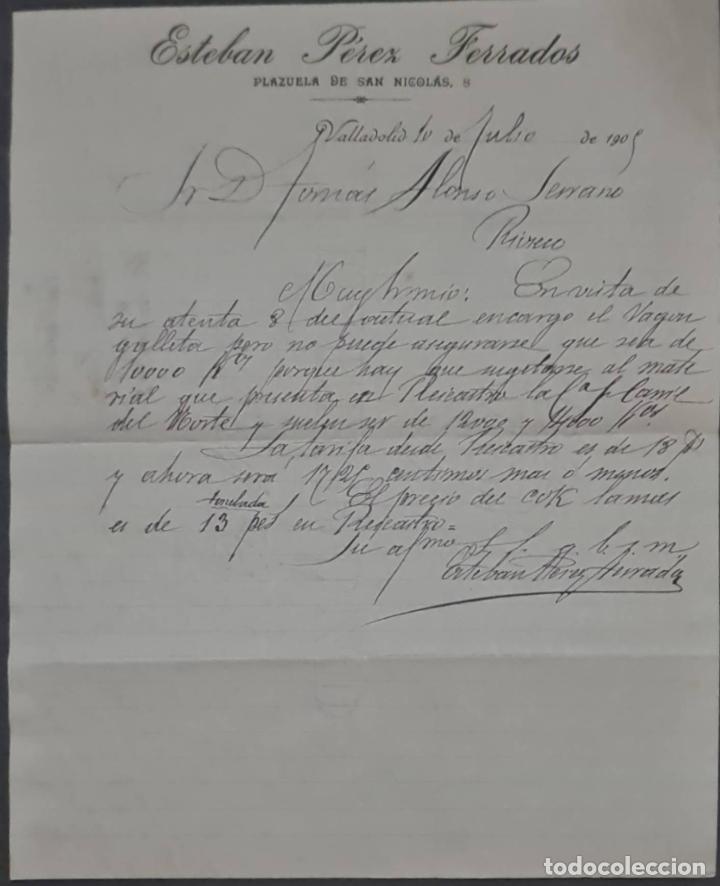 Esteban Pérez Ferrados
PLAZUELA DE SAN NICOLÁS, 8
Valladolid 10 de Julio de 1905
Sr D Tomás Alonso Serrano
Rioseco
Muy Sr mio: En vista de
su atenta 8 del actual encargo el Vagon
galleta pero no puede asegurarse que sea de
10000 Ks porque hay que sugetarse al mate
rial que presenta en la Cª f. Carril
del Norte y suelen ser de 12000 y 14000 Ks.
La tarifa desde es de 18 Ps
y ahora será 17/25 centimos mas o menos.
tonelada
El precio del cok
es de 13 pes en
Su afmo S. S. q. b. s. m.
Esteban Pérez Ferrados
todocoleccion
todocoleccion.net